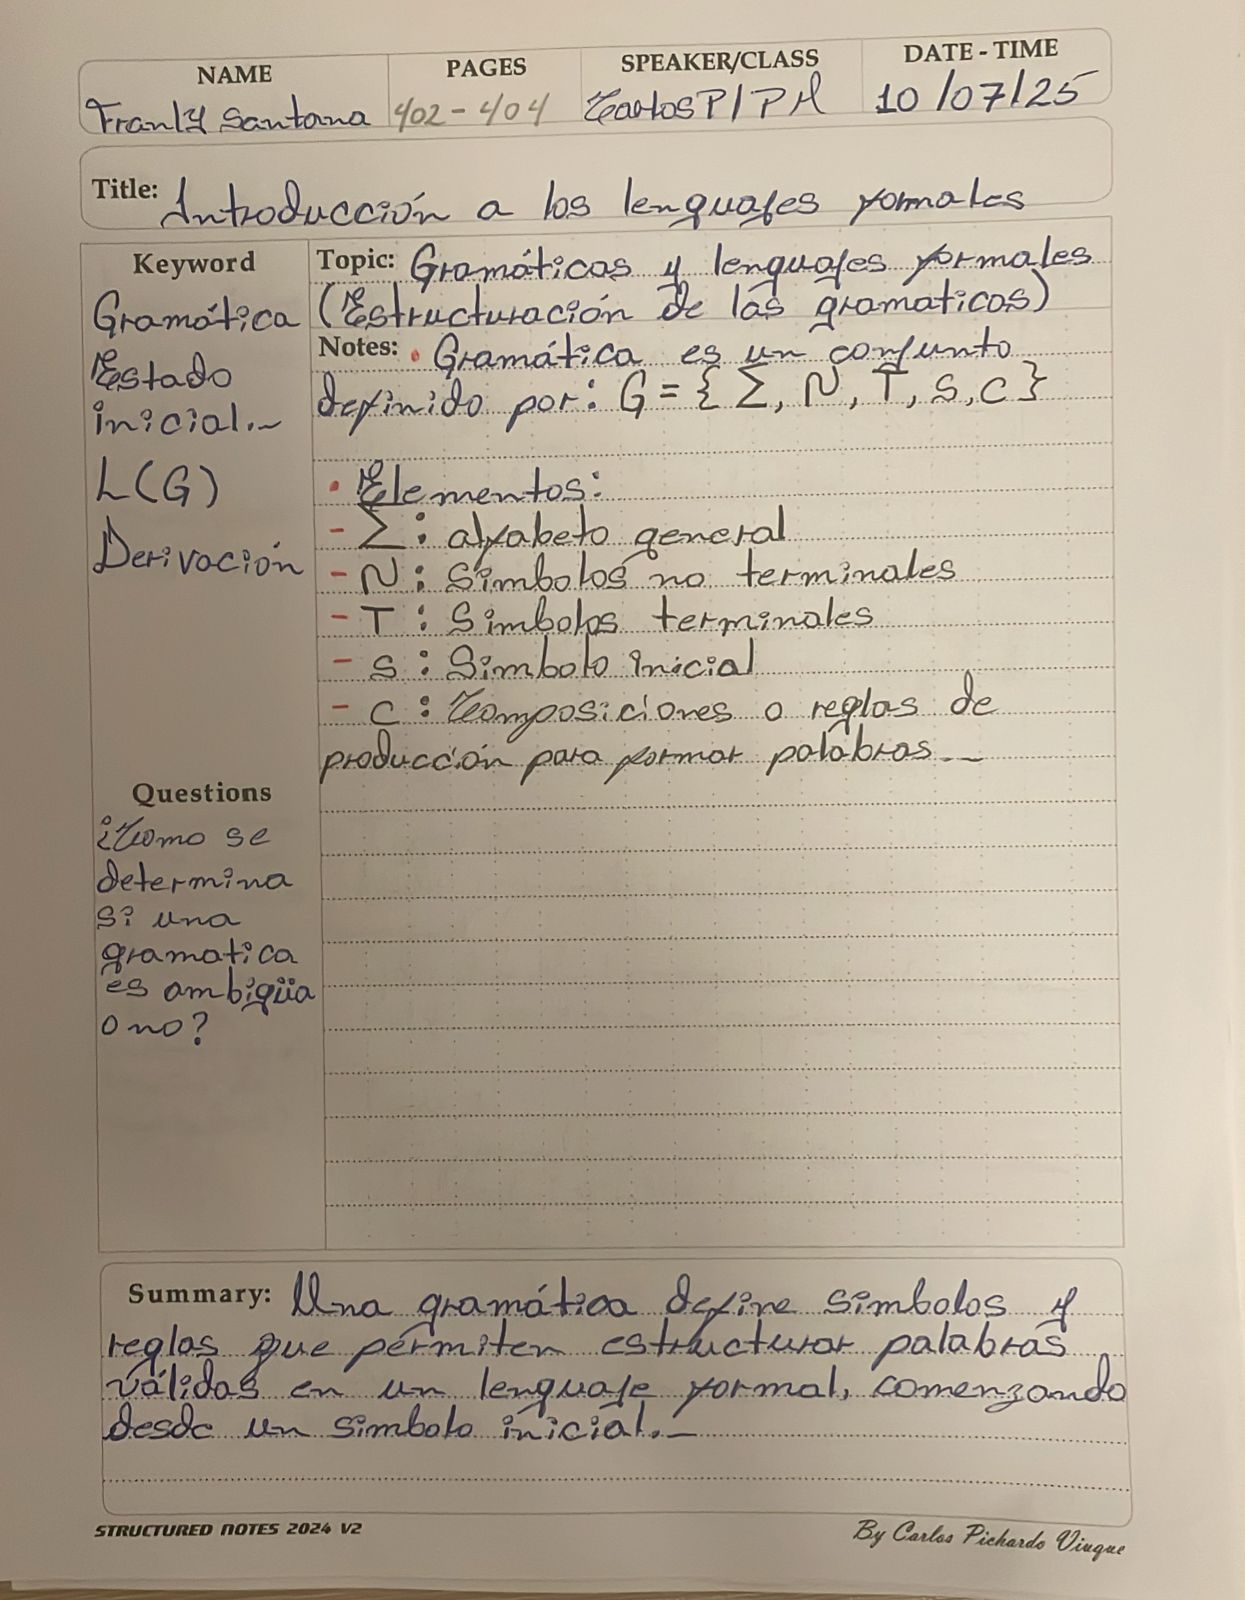 NAME PAGES SPEAKER/CLASS DATE - TIME
Franly Santana 402-404 Carlos P/PA 10/07/25
Title: Introducción a los lenguajes formales
Keyword
Gramática
Estado
inicial.-
L(G)
Derivación
Topic: Gramáticas y lenguajes formales
(Estructuración de las gramaticas)
Notes: • Gramática es un conjunto
definido por: G = { Σ, N, T, S, C }
• Elementos:
- Σ : alfabeto general
- N : Simbolos no terminales
- T : Simbolos terminales
- S : Simbolo inicial
- C : Composiciones o reglas de
producción para formar palabras.-
Questions
¿Como se
determina
si una
gramatica
es ambigüa
o no?
Summary: Una gramática define simbolos y
reglas que permiten estructurar palabras
válidas en un lenguaje formal, comenzando
desde un simbolo inicial.-
STRUCTURED NOTES 2024 V2
By Carlos Pichardo Viuque